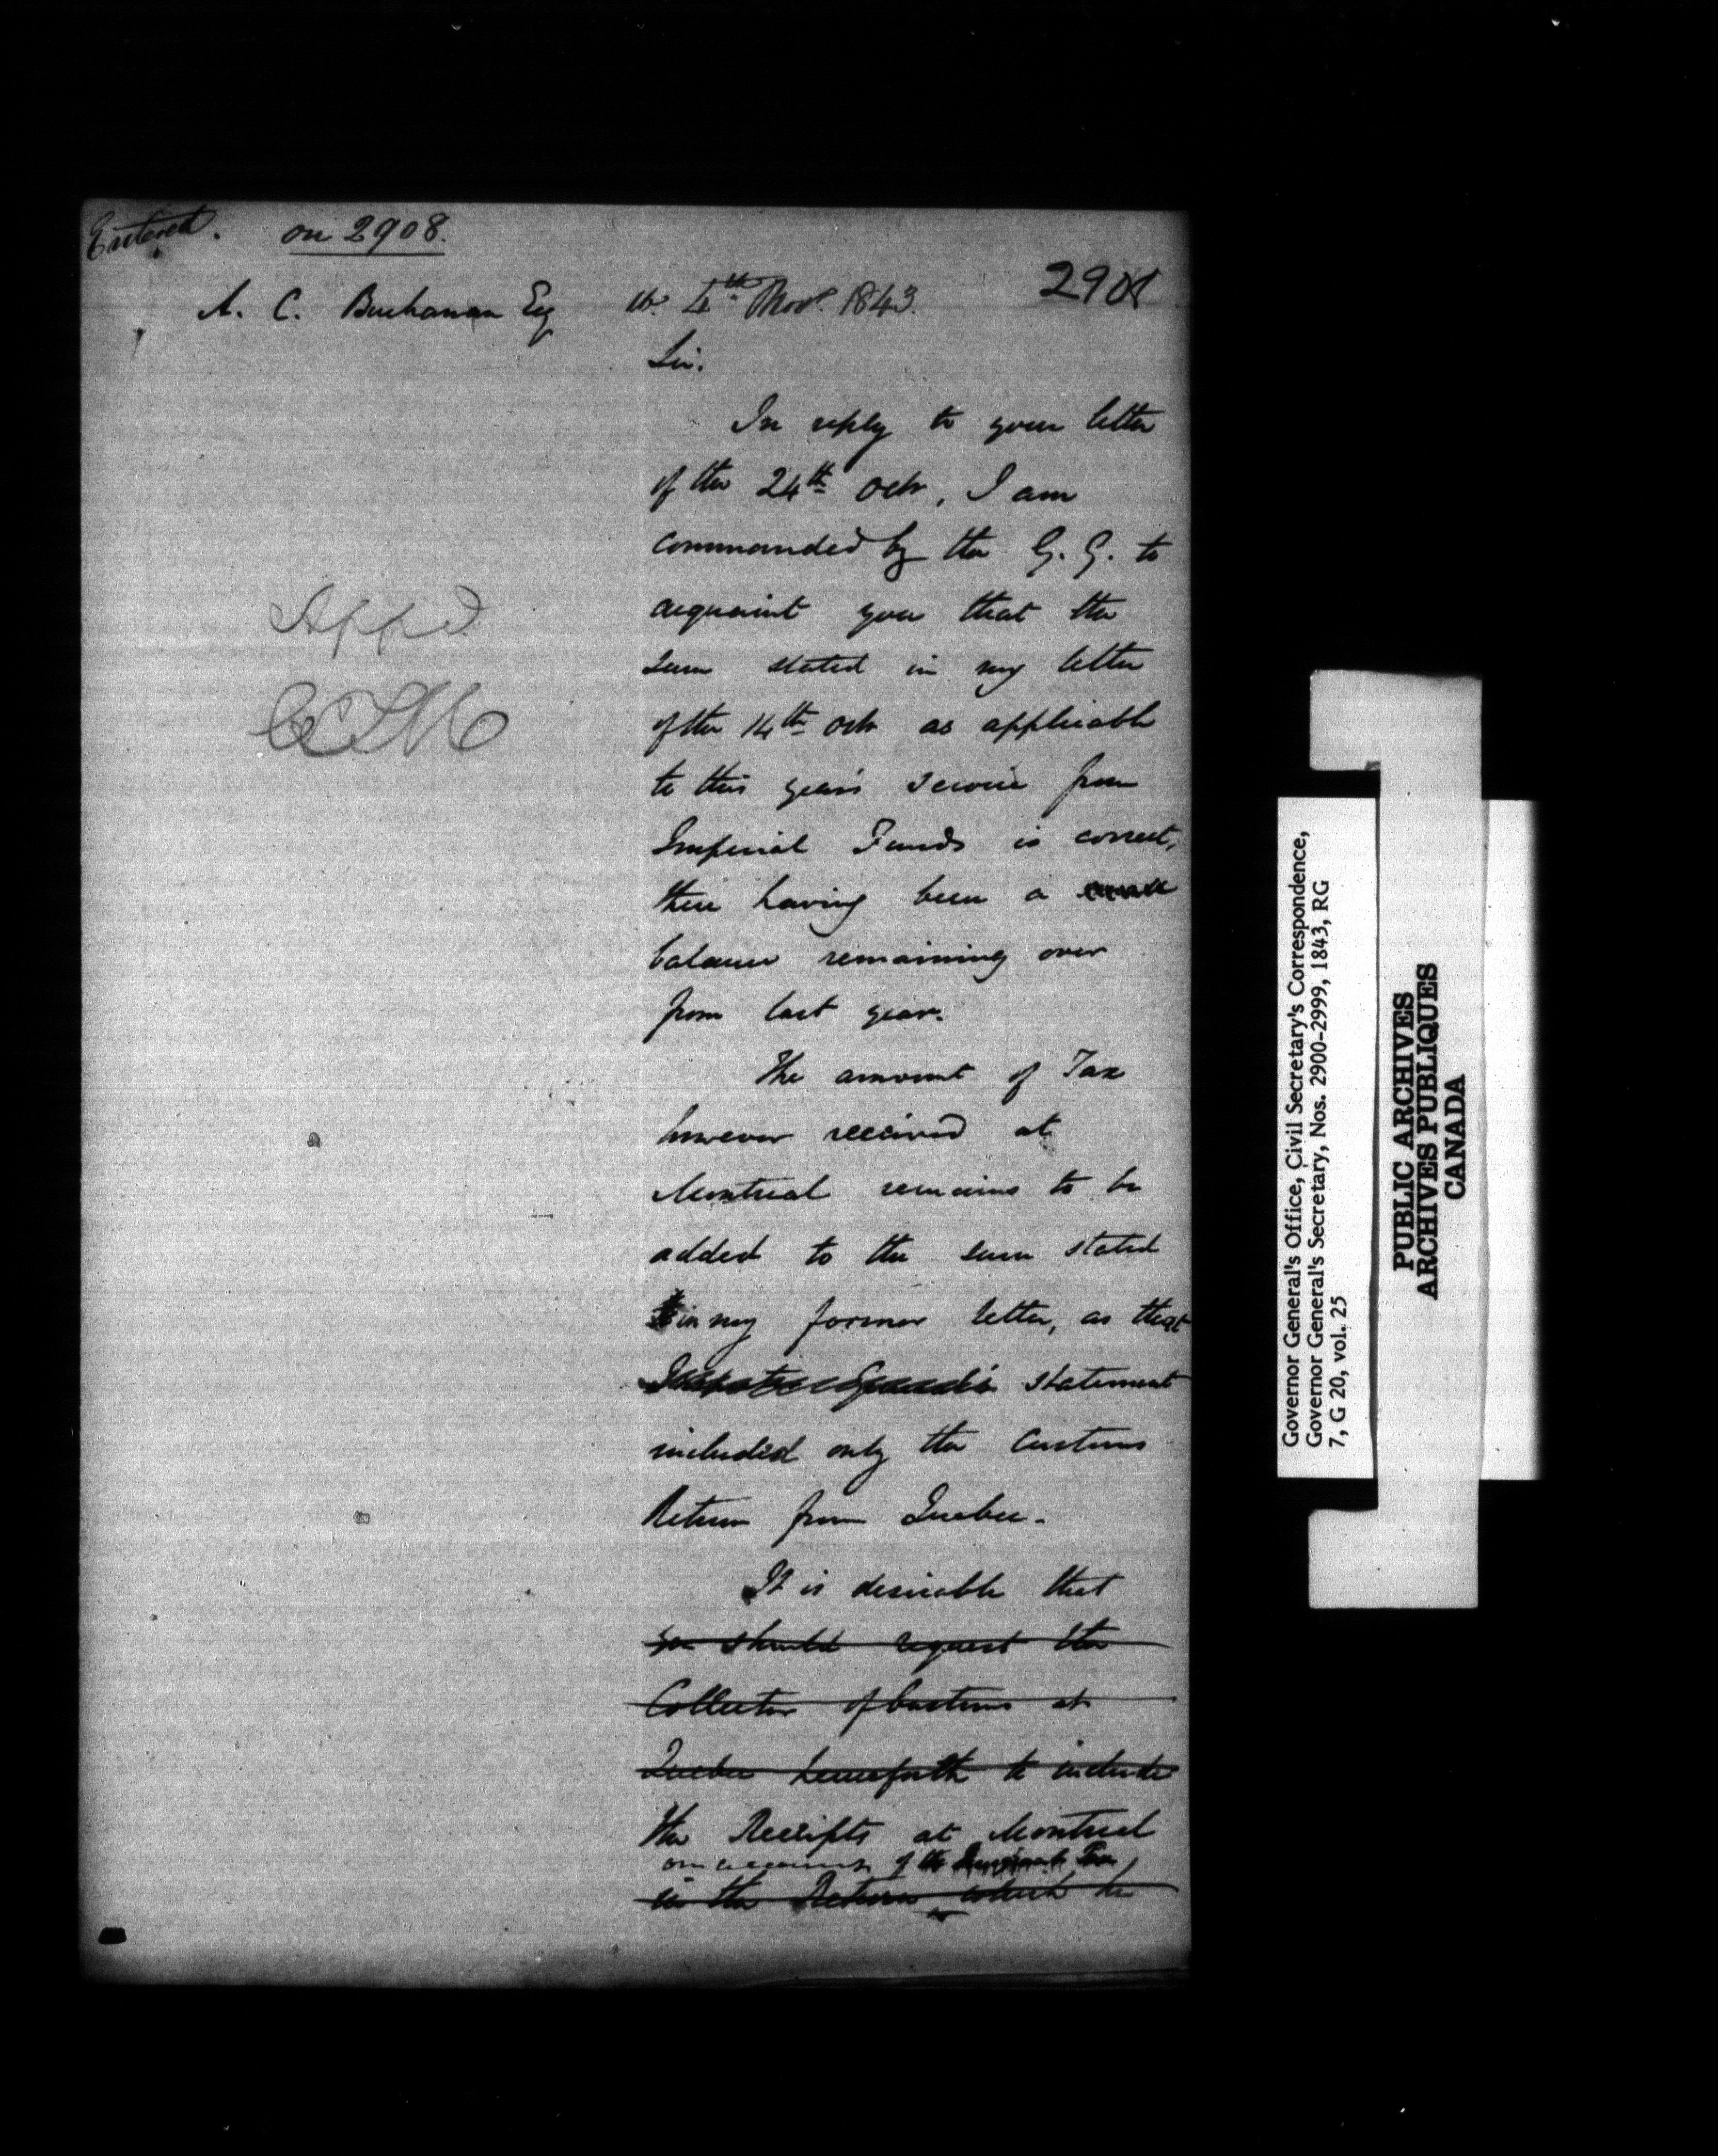 Entered. on 2908.
2908
A. C. Buchanan Esq
4th Novr. 1843.
Sir.
In reply to your letter
of the 24th Octr, I am
commanded by the G. G. to
acquaint you that the
sum stated in my letter
of the 14th Octr as applicable
to this year's service from
Imperial Funds is correct,
there having been a small
balance remaining over
from last year.
The amount of Tax
however received at
Montreal remains to be
added to the sum stated
in my former letter, as that
statement
included only the Customs
Return from Quebec.
It is desirable that
you should request the
Collector of Customs at
Quebec henceforth to include
the Receipts at Montreal
on account of the Emigrant Tax
in the Return which he
Appd.
Governor General's Office, Civil Secretary's Correspondence,
Governor General's Secretary, Nos. 2900-2999, 1843, RG
7, G 20, vol. 25
PUBLIC ARCHIVES
ARCHIVES PUBLIQUES
CANADA